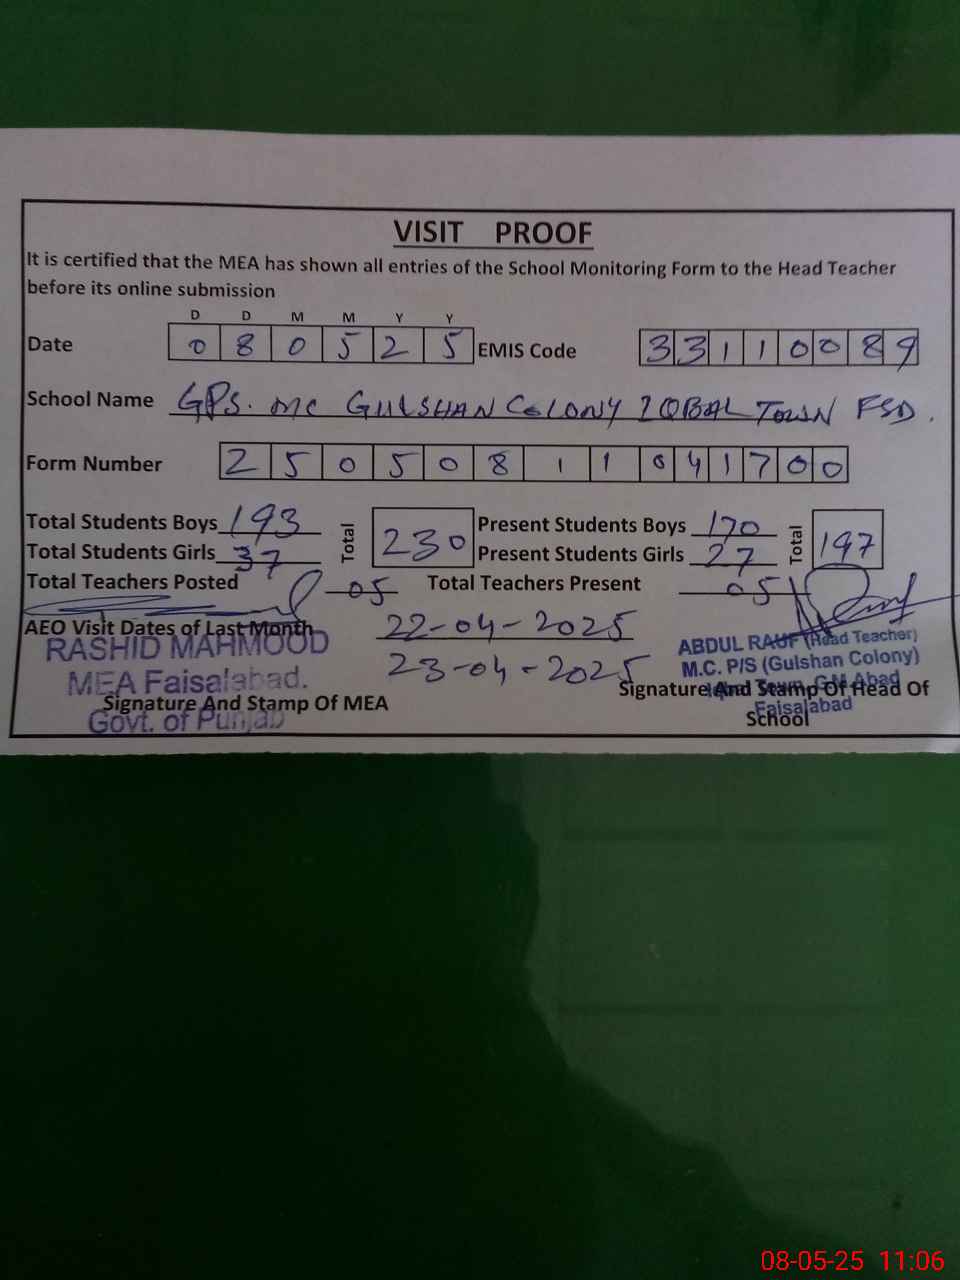 VISIT PROOF
It is certified that the MEA has shown all entries of the School Monitoring Form to the Head Teacher
before its online submission
D D M M Y Y
Date 0 8 0 5 2 5 EMIS Code 3 3 1 1 0 0 8 9
School Name GPS. MC GULSHAN COLONY IQBAL TOWN FSD.
Form Number 2 5 0 5 0 8 1 1 0 4 1 7 0 0
Total Students Boys 193 Total 230 Present Students Boys 170 Total 197
Total Students Girls 37 Present Students Girls 27
Total Teachers Posted 05 Total Teachers Present 05
AEO Visit Dates of Last Month 22-04-2025
23-04-2025
RASHID MAHMOOD
MEA Faisalabad.
Govt. of Punjab
Signature And Stamp Of MEA
ABDUL RAUF (Head Teacher)
M.C. P/S (Gulshan Colony)
Iqbal Town, G.M Abad
Faisalabad
Signature And Stamp Of Head Of
School
08-05-25 11:06